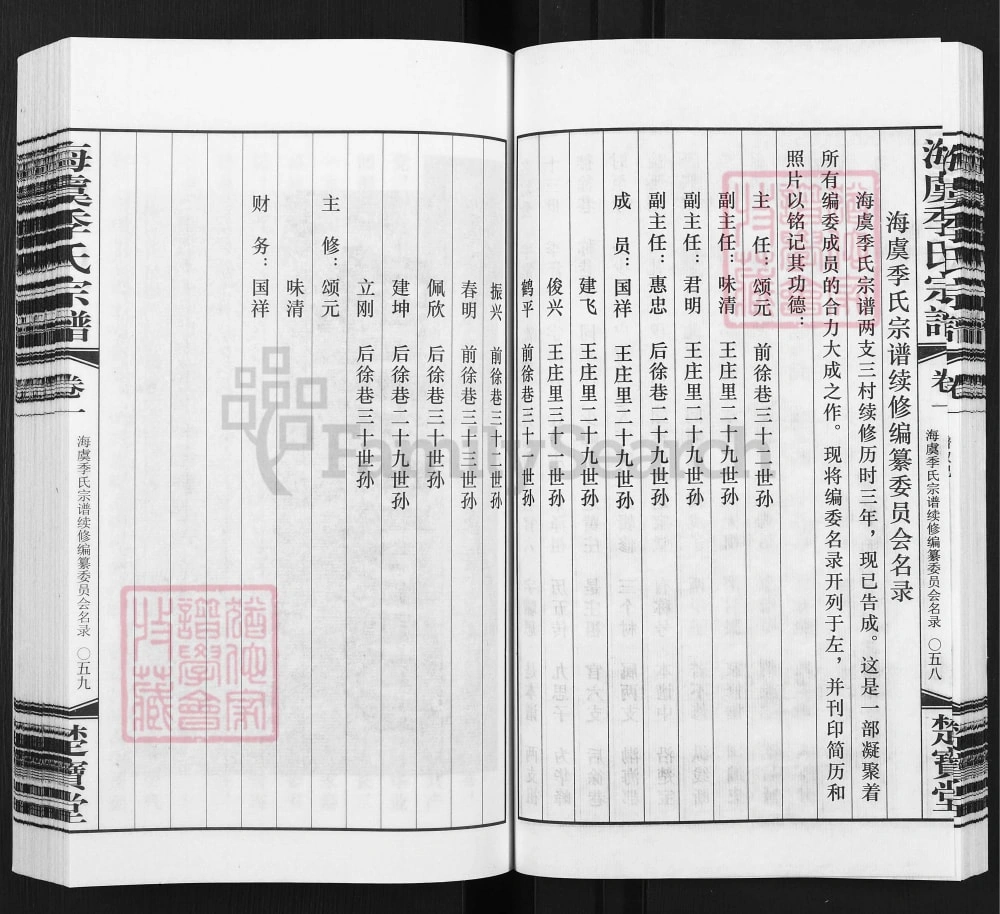 海虞季氏宗谱
卷一
海虞季氏宗谱续修编纂委员会名录
〇五八
楚寶堂
海虞季氏宗谱续修编纂委员会名录
海虞季氏宗谱两支三村续修历时三年，现已告成。这是一部凝聚着
所有编委成员的合力大成之作。现将编委名录开列于左，并刊印简历和
照片以铭记其功德：
主任：颂元 前徐巷三十二世孙
副主任：味清 王庄里二十九世孙
副主任：君明 王庄里二十九世孙
副主任：惠忠 后徐巷二十九世孙
成员：国祥 王庄里二十九世孙
建飞 王庄里二十九世孙
俊兴 王庄里三十一世孙
鹤平 前徐巷三十一世孙
振兴 前徐巷三十二世孙
春明 前徐巷三十三世孙
佩欣 后徐巷三十世孙
建坤 后徐巷二十九世孙
立刚 后徐巷三十世孙
主修：颂元
味清
财务：国祥
海虞季氏宗谱
卷一
海虞季氏宗谱续修编纂委员会名录
〇五九
楚寶堂
FamilySearch